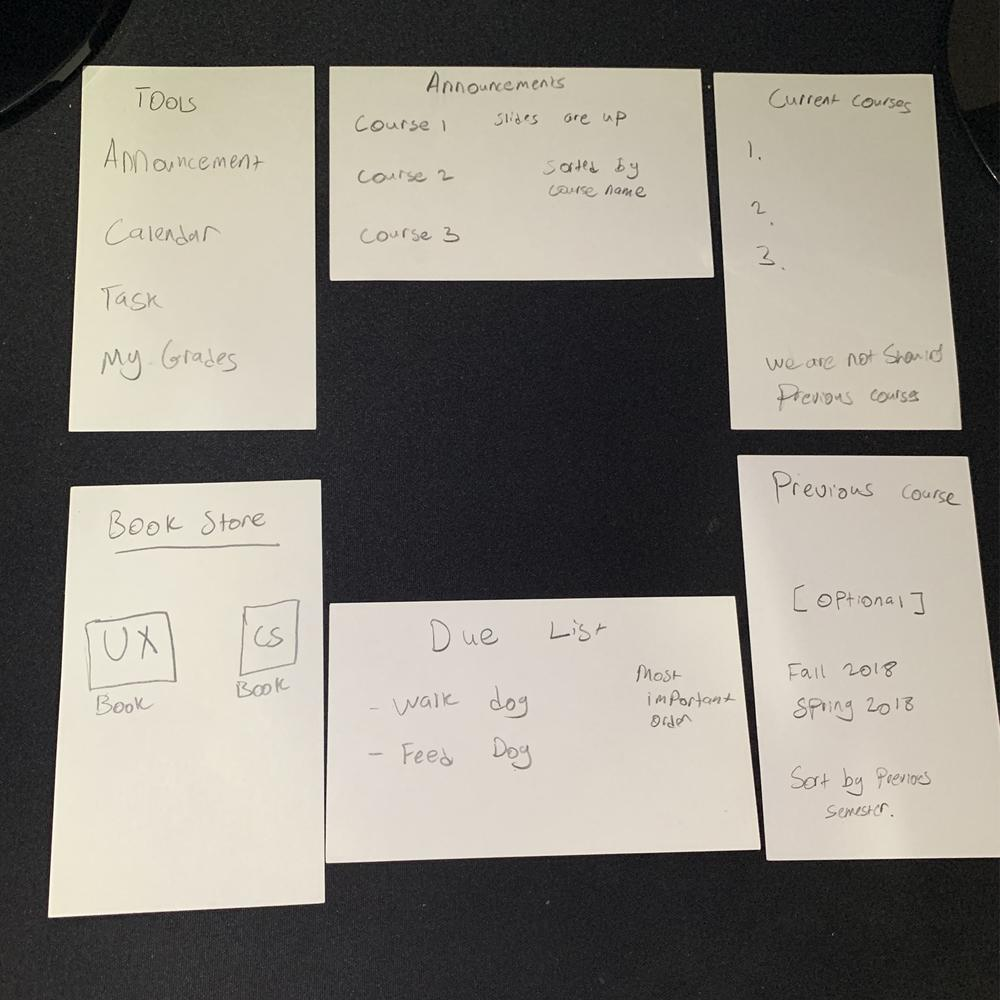 TOOLS
Announcement
Calendar
Task
My Grades
Announcements
Course 1 slides are up
Course 2 sorted by
course name
Course 3
Current courses
1.
2.
3.
we are not
Previous courses
Book Store
UX
Book
CS
Book
Due List
- Walk dog
- Feed Dog
Most
important
order
Previous course
[optional]
Fall 2018
Spring 2018
Sort by Previous
semester.